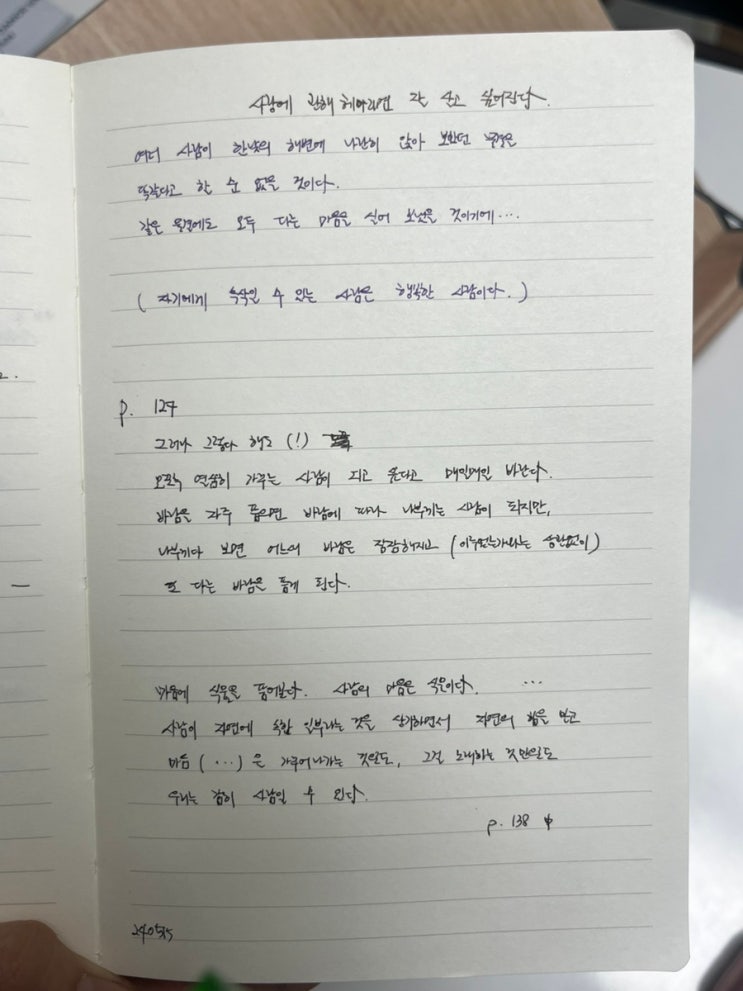 사랑에 관해 헤아리면 잘 살고 싶어진다.
여러 사람이 한낮의 해변에 나란히 앉아 보았던 물결은
똑같다고 할 순 없을 것이다.
같은 물결에도 모두 다른 마음을 실어 보냈을 것이기에…
( 자기에게 속삭일 수 있는 사람은 행복한 사람이다. )
p. 127
그러나 그렇다 해도 (!)
모쪼록 열심히 가꾸는 사람이 되고 싶다고 매일매일 바란다.
바람을 자주 품으면 바람에 따라 나부끼는 사람이 되지만,
나부끼다 보면 어느의 바람은 잠잠해지고 (이루었는가와는 상관없이)
또 다른 바람을 품게 된다.
마음에 식물을 품어본다. 사람의 마음은 식물이다. …
사람이 자연에 속한 일부라는 것을 상기하면서 자연의 힘을 믿고
마음 (…) 을 가꾸어나가는 것으로도, 그걸 노래하는 것만으로도
우리는 감히 사람일 수 있다.
p. 138 中
240515